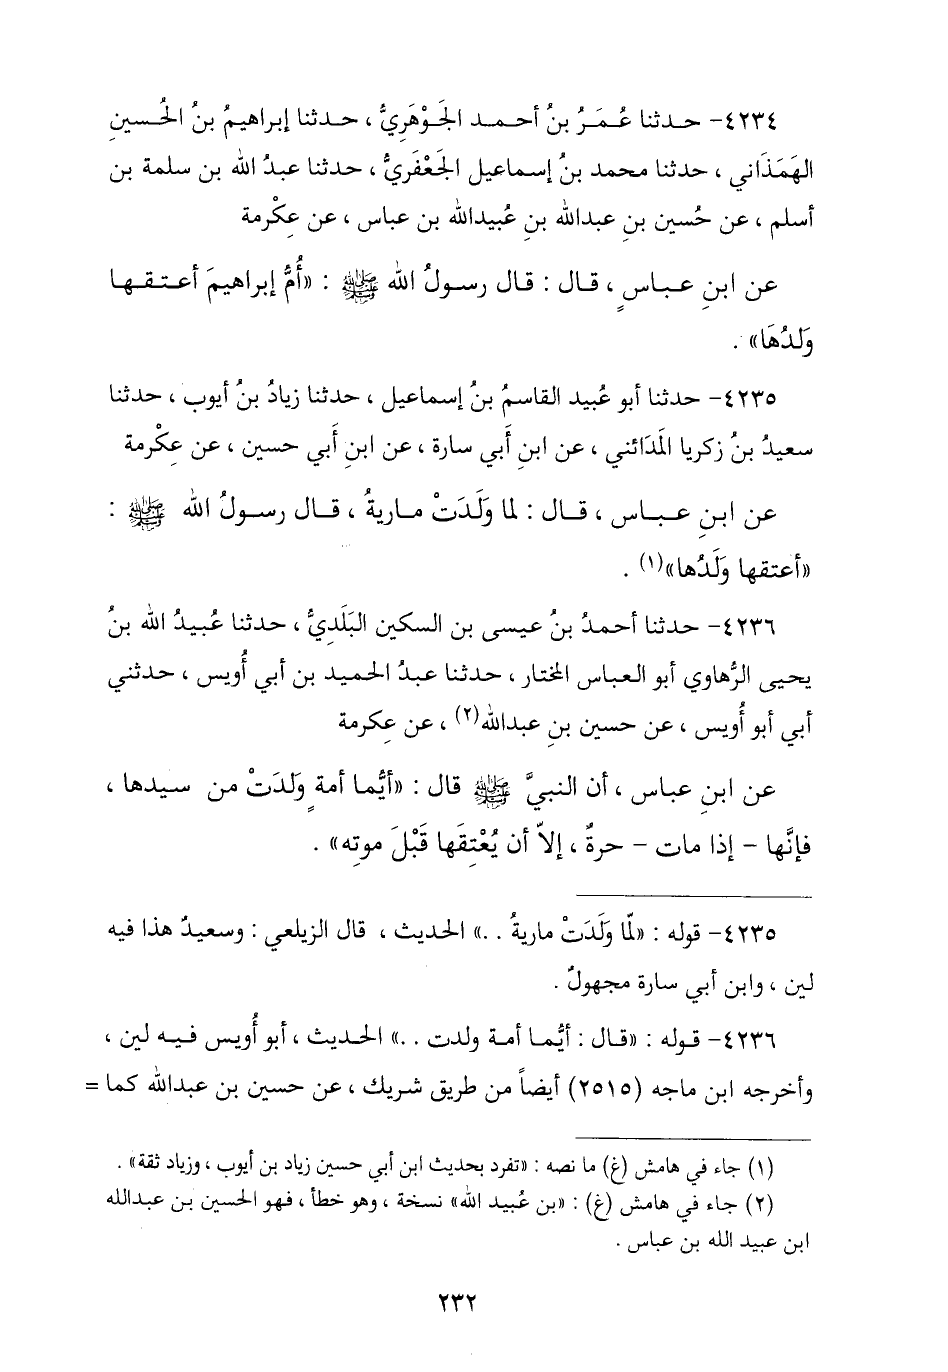 ٤٢٣٤- حدثنا عُمَرُ بنُ أحمد الجَوْهَرِيُّ ، حدثنا إبراهيمُ بنُ الحُسينِ
الهَمَذَاني ، حدثنا محمد بنُ إسماعيل الجَعْفَريُّ ، حدثنا عبدُ الله بن سلمة بن
أسلم ، عن حُسين بنِ عبدالله بنِ عُبيدالله بن عباس ، عن عِكْرمة
عن ابنِ عباسٍ ، قال : قال رسولُ الله ﷺ : «أُمُّ إبراهيمَ أعتقها
وَلَدُهَا» .
٤٢٣٥- حدثنا أبو عُبيد القاسمُ بنُ إسماعيل ، حدثنا زيادُ بنُ أيوب ، حدثنا
سعيدُ بنُ زكريا المَدَائني ، عن ابنِ أَبي سارة ، عن ابنِ أَبي حسين ، عن عِكْرمة
عن ابنِ عباس ، قال : لما وَلَدَتْ ماريةُ ، قال رسولُ الله ﷺ :
«أعتقها وَلَدُها»(١) .
٤٢٣٦- حدثنا أحمدُ بنُ عيسى بن السكين البَلَديُّ ، حدثنا عُبيدُ الله بنُ
يحيى الرُّهاوي أبو العباس المختار ، حدثنا عبدُ الحميد بن أبي أُويس ، حدثني
أبي أبو أُويس ، عن حسين بنِ عبدالله(٢) ، عن عِكرمة
عن ابنِ عباس ، أن النبيَّ ﷺ قال : «أيُّما أمةٍ وَلَدَتْ من سيدها ،
فإنَّها - إذا مات - حرةٌ ، إلاّ أن يُعْتِقَها قَبْلَ موتِه» .
٤٢٣٥- قوله : «لمّا وَلَدَتْ ماريةُ . .» الحديث ، قال الزيلعي : وسعيدٌ هذا فيه
لين ، وابن أبي سارة مجهولٌ .
٤٢٣٦- قوله : «قال : أيُّما أمة ولدت . .» الحديث ، أبو أُويس فيه لين ،
وأخرجه ابن ماجه (٢٥١٥) أيضاً من طريق شريك ، عن حسين بن عبدالله كما =
(١) جاء في هامش (غ) ما نصه : «تفرد بحديث ابن أبي حسين زياد بن أيوب ، وزياد ثقة» .
(٢) جاء في هامش (غ) : «بن عُبيد الله» نسخة ، وهو خطأ ، فهو الحسين بن عبدالله
ابن عبيد الله بن عباس .
٢٣٢